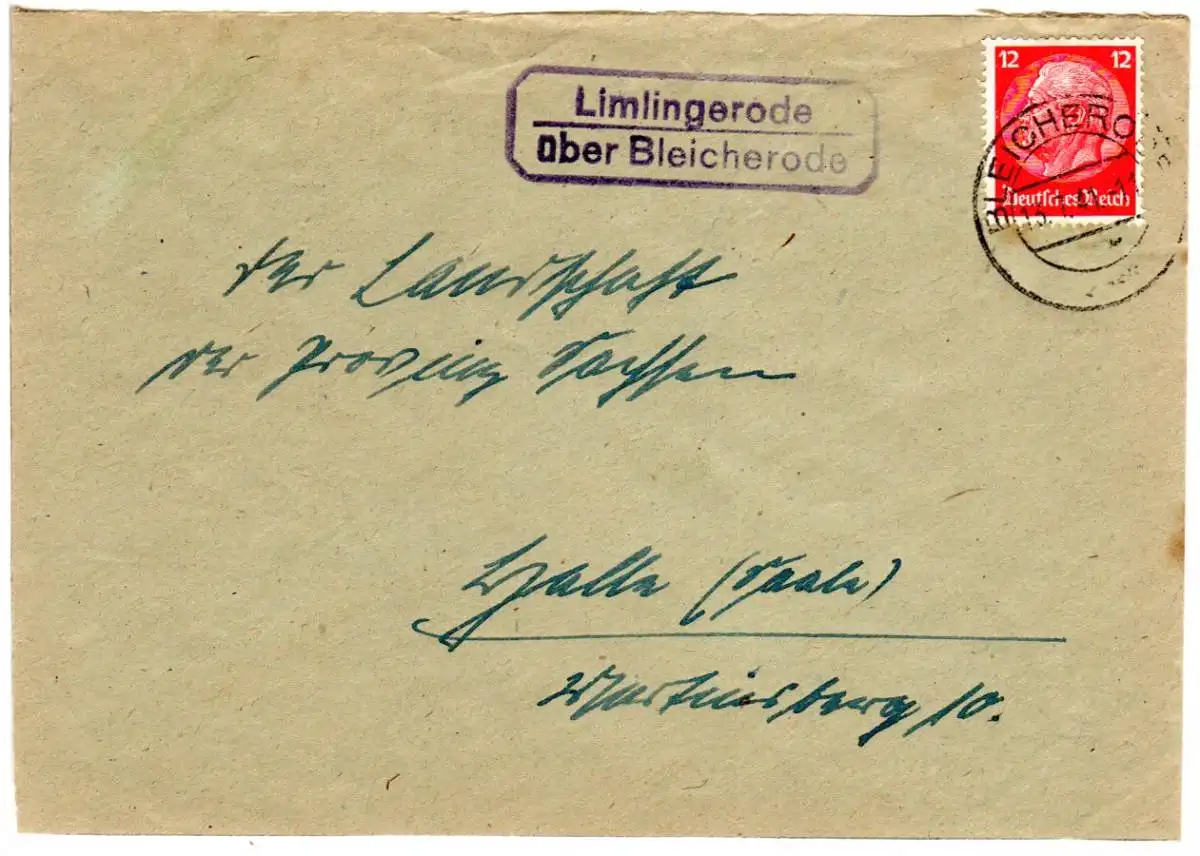 Limlingerode
über Bleicherode
12 12
Deutsches Reich
BLEICHERO
13.1.41
der Landschaft
der Provinz Sachsen
Halle (Saale)
Martinsberg 10.